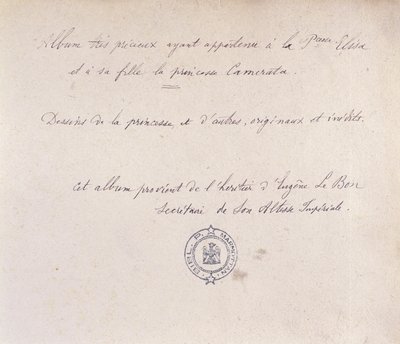 Album très précieux ayant appartenu à la Psse Elisa
et à sa fille la princesse Camerata.
Dessins de la princesse et d'autres, originaux et inédits.
Cet album provient de l'héritier d'Eugène Le Bon
Secrétaire de Son Altesse Impériale.
BIBL. P. MARMOTTAN